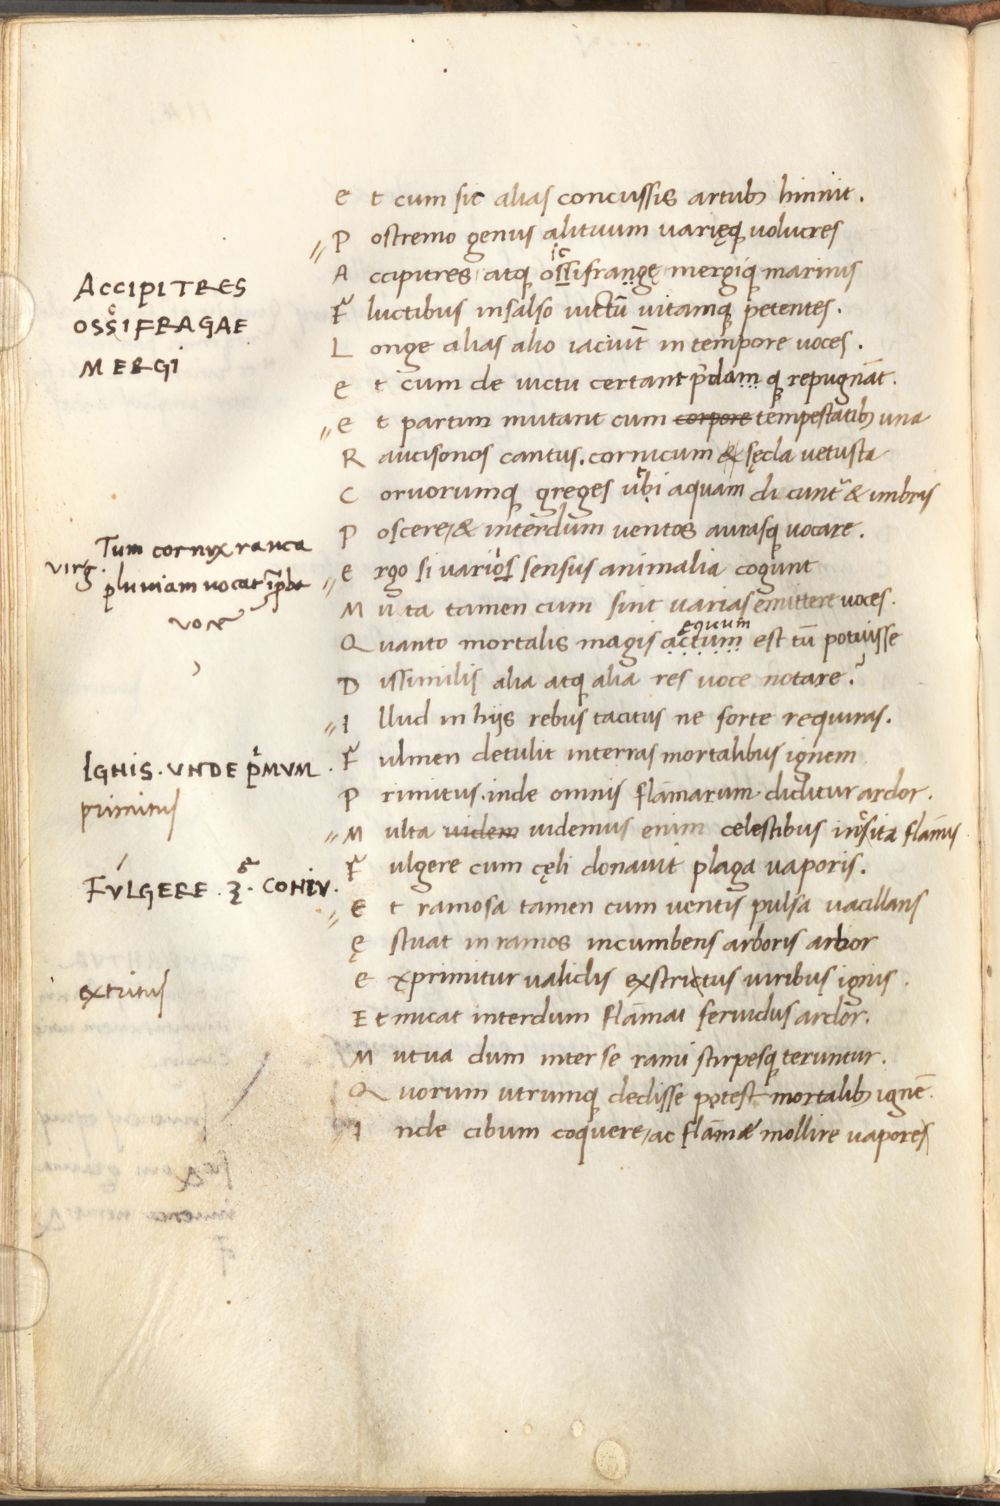 Et cum sic alias concussis artubꝫ hinnit.
Postremo genus alituum varięqꝫ uolucres
Accipitres atqꝫ ossifrangę mergiqꝫ marinis
Fluctibus insalso victū uitamqꝫ petentes.
Longe alias alio iaciūt in tempore uoces.
et cum de uictu certant p̄dam qꝫ repugnāt.
et partim mutant cum corpore tempestatibꝫ una
Raucisonos cantus. cornicum & sęcla uetusta
Coruorumqꝫ greges ubi aquam dicunt̃ & imbris
Poscere, & interdum uentos aurasqꝫ uocare.
Ergo si varios sensus animalia cogunt
Muta tamen cum sint uarias emittere uoces.
equum
Quanto mortalis magis actum est tū potuisse
Dissimilis alia atqꝫ alia res uoce notare?
Illud in hijs rebus tacitus ne forte requiras.
Fulmen detulit interras mortalibus ignem
Primitus. inde omnis flāmarum diditur ardor.
Multa uidem uidemus enim celestibus insita flāmis
Fulgere cum cęli donauit plaga uaporis.
Et ramosa tamen cum uentis pulsa uacillans
ęstuat in ramos incumbens arboris arbor
exprimitur validis exstrictus uiribus ignis.
Et micat interdum flāmai feruidus ardor.
Mutua dum inter se rami stirpesqꝫ teruntur.
Quorum utrumqꝫ dedisse potest mortalibꝫ ignē.
Inde cibum coquere, ac flāmæ mollire vapores
ACCIPITRES
OSSIFRAGAE
MERGI
virg. Tum cornyx rauca
pluuiam uocat īp̱ba
voce
IGNIS. UNDE PRMUM.
primitus
FÚLGERE. 3. CONIU.
extritus